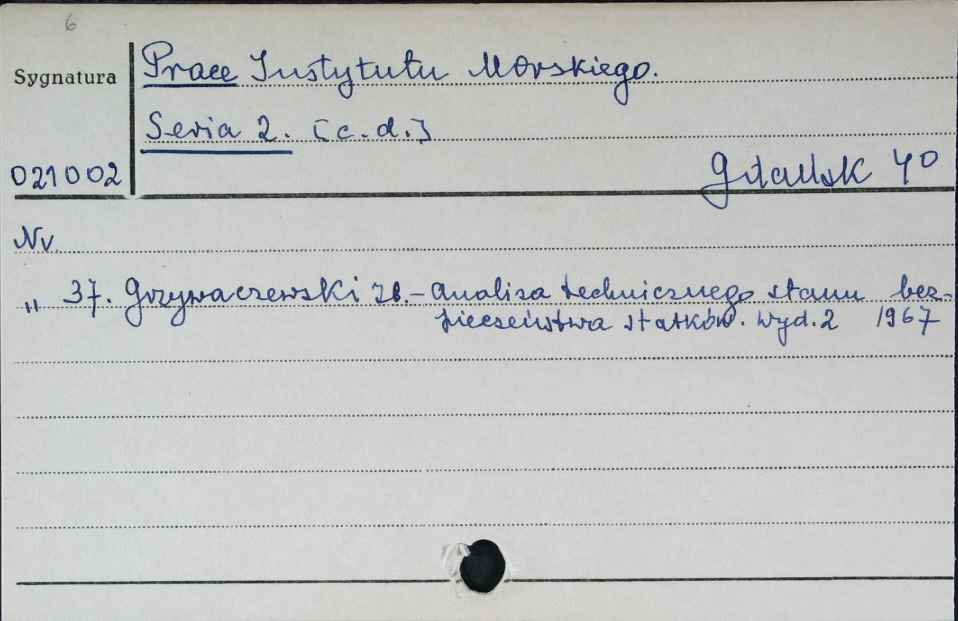 6
Sygnatura
Prace Instytutu Morskiego.
Seria 2. [c.d.]
021002
Gdańsk 4⁰
Nr
„ 37. Grzywaczewski Zb. - Analiza technicznego stanu bez-
pieczeństwa statków. Wyd. 2 1967